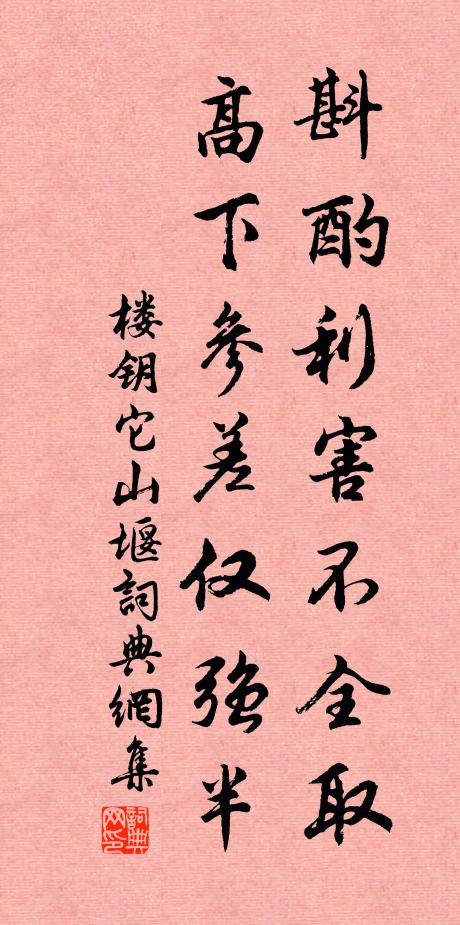 斟酌利害不全取
高下參差仅強半
楼钥它山堰詞典網集
詞典网印